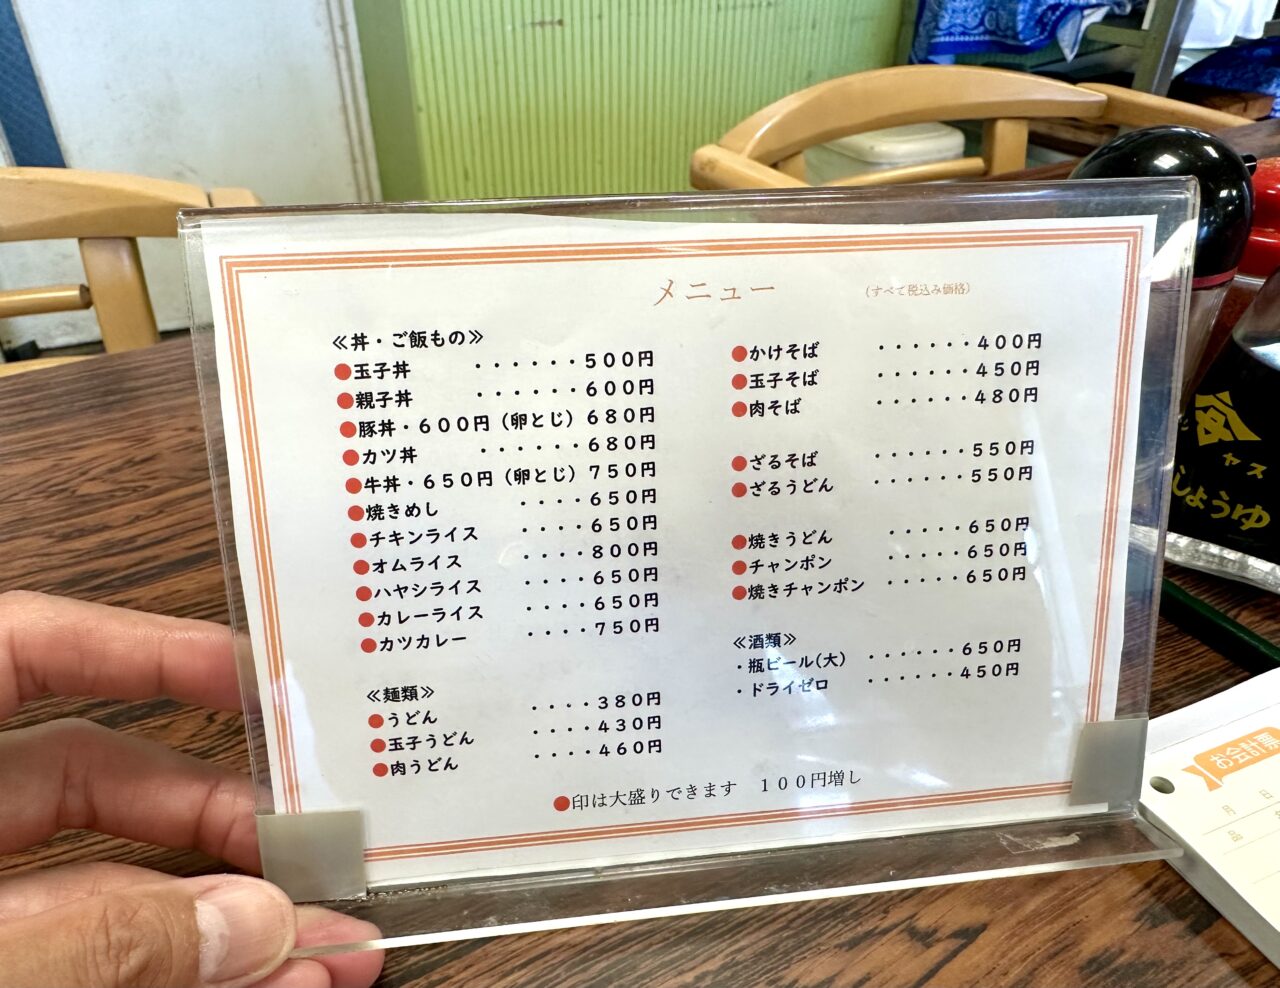 メニュー (すべて税込み価格)
≪丼・ご飯もの≫
●玉子丼 ・・・・・・500円
●親子丼 ・・・・・・600円
●豚丼・600円(卵とじ)680円
●カツ丼 ・・・・・・680円
●牛丼・650円(卵とじ)750円
●焼きめし ・・・・650円
●チキンライス ・・・・650円
●オムライス ・・・・800円
●ハヤシライス ・・・・650円
●カレーライス ・・・・650円
●カツカレー ・・・・750円
≪麺類≫
●うどん ・・・・380円
●玉子うどん ・・・・430円
●肉うどん ・・・・460円
●かけそば ・・・・・・400円
●玉子そば ・・・・・・450円
●肉そば ・・・・・・480円
●ざるそば ・・・・・・550円
●ざるうどん ・・・・・・550円
●焼きうどん ・・・・・650円
●チャンポン ・・・・・650円
●焼きチャンポン ・・・・・650円
≪酒類≫
・瓶ビール(大) ・・・・・・650円
・ドライゼロ ・・・・・・450円
●印は大盛りできます 100円増し
ヤス
しょうゆ
お会計票